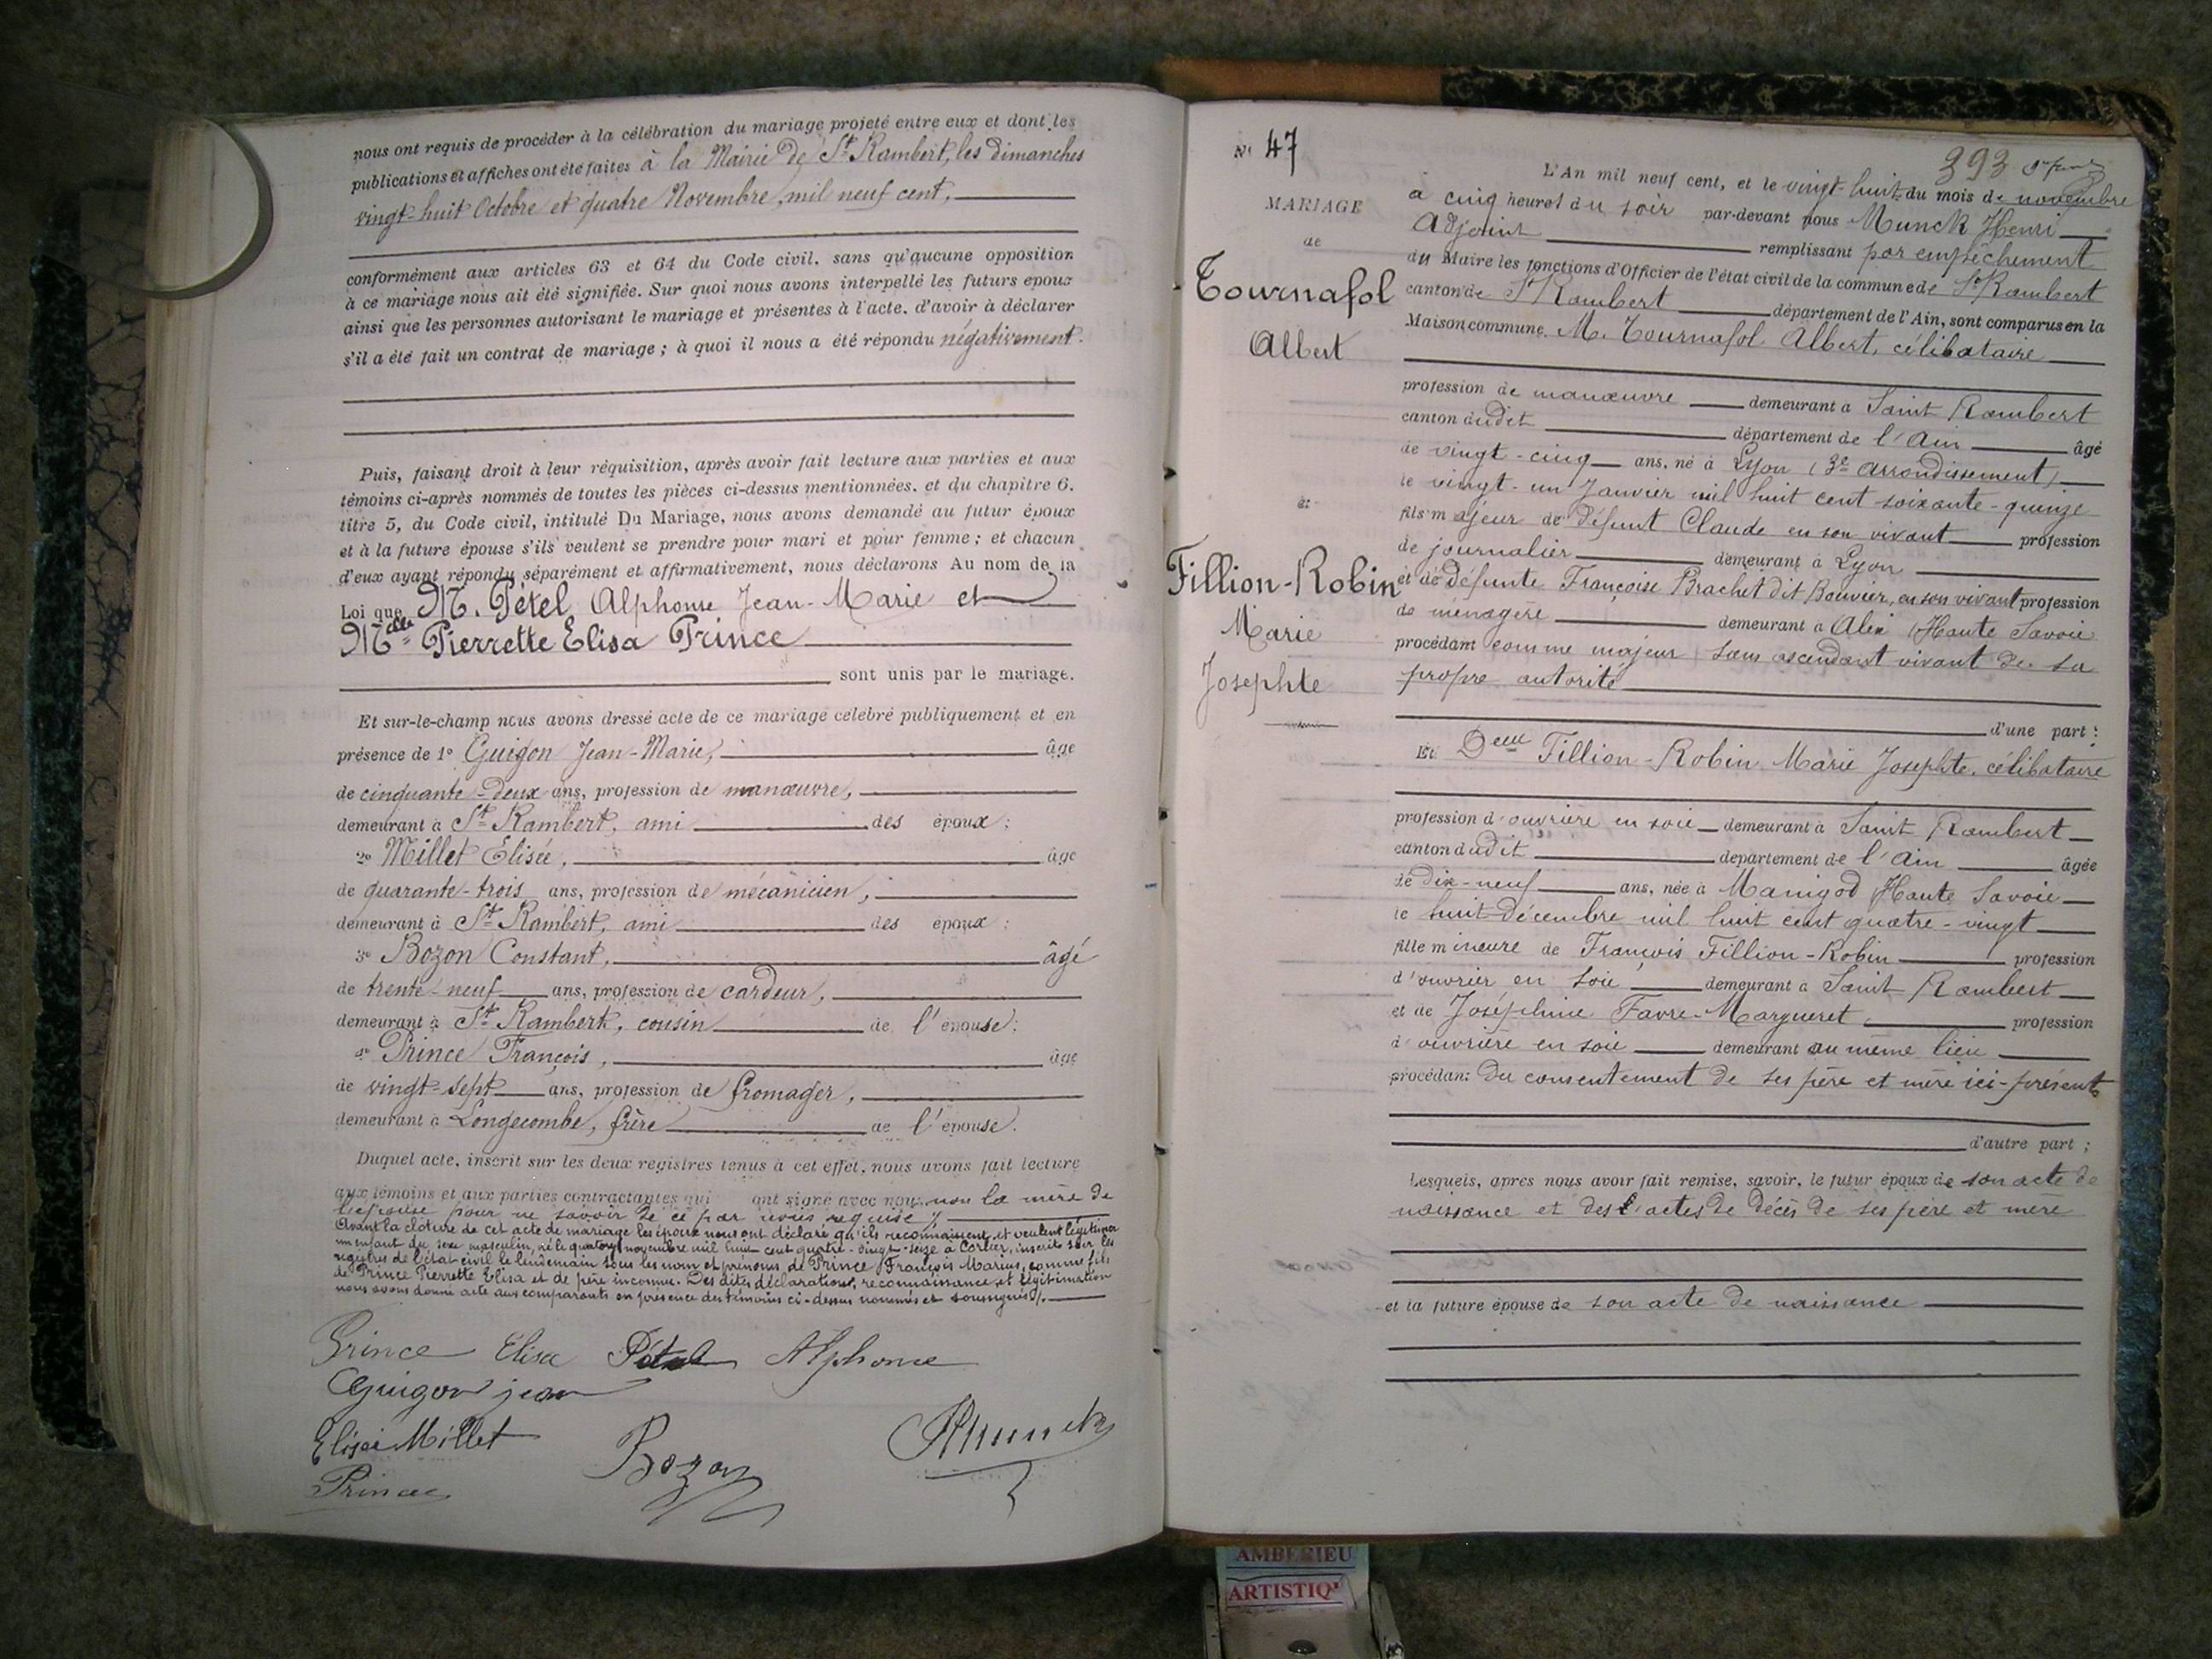 nous ont requis de procéder à la célébration du mariage projeté entre eux et dont les
publications et affiches ont été faites à la Mairie de St Rambert, les dimanches
vingt-huit Octobre et quatre Novembre, mil neuf cent,
conformément aux articles 63 et 64 du Code civil, sans qu'aucune opposition
à ce mariage nous ait été signifiée. Sur quoi nous avons interpellé les futurs epoux
ainsi que les personnes autorisant le mariage et présentes à l'acte, d'avoir à déclarer
s'il a été fait un contrat de mariage ; à quoi il nous a été répondu négativement.
Puis, faisant droit à leur réquisition, après avoir fait lecture aux parties et aux
témoins ci-après nommés de toutes les pièces ci-dessus mentionnées, et du chapitre 6,
titre 5, du Code civil, intitulé Du Mariage, nous avons demandé au futur époux
et à la future épouse s'ils veulent se prendre pour mari et pour femme ; et chacun
d'eux ayant répondu séparément et affirmativement, nous déclarons Au nom de la
Loi que M. Pétel Alphonse Jean-Marie et
Mdelle Pierrette Elisa Prince
sont unis par le mariage.
Et sur-le-champ nous avons dressé acte de ce mariage célébré publiquement et en
présence de 1° Guigon Jean-Marie, âge
de cinquante-deux ans, profession de manœuvre,
demeurant à St Rambert, ami des époux ;
2° Millet Élisée, âge
de quarante-trois ans, profession de mécanicien,
demeurant à St Rambert, ami des époux ;
3° Bozon Constant, âgé
de trente-neuf ans, profession de cardeur,
demeurant à St Rambert, cousin de l'épouse;
4° Prince François, âge
de vingt-sept ans, profession de fromager,
demeurant à Longecombe, frère de l'épouse.
Duquel acte, inscrit sur les deux registres tenus à cet effet, nous avons fait lecture
aux témoins et aux parties contractantes qui ont signé avec nous non la mère de
l'épouse pour ne savoir de ce par nous requise
Avant la clôture de cet acte de mariage les époux nous ont déclaré qu'ils reconnaissent et veulent légitimer
un enfant du sexe masculin, né le quatorze novembre mil huit cent quatre-vingt-seize à Corlier, inscrit sur les
registres de l'état-civil le lendemain sous les nom et prénoms de Prince François Marius, comme fils
de Prince Pierrette Elisa et de père inconnu. Des dites déclarations, reconnaissance et légitimation
nous avons donné acte aux comparants en présence des témoins ci-dessus nommés et soussignés.
Prince Elisa Pétel Alphonse
Guigon jean
Elisée Millet Bozon HMunck
Prince
N° 47
393
MARIAGE
de
Tournafol
Albert
et
Fillion-Robin
Marie
Josephte
L'An mil neuf cent, et le vingt-huit du mois de novembre
à cinq heures du soir par-devant nous Munck Henri
Adjoint remplissant par empêchement
du Maire les fonctions d'Officier de l'état civil de la commune de St Rambert
canton de St Rambert département de l'Ain, sont comparus en la
Maison commune M. Tournafol Albert, célibataire
profession de manœuvre demeurant à Saint Rambert
canton dudit département de l'Ain âgé
de vingt-cinq ans, né à Lyon (3e arrondissement)
le vingt-un Janvier mil huit cent soixante-quinze
fils majeur de défunt Claude en son vivant profession
de journalier demeurant à Lyon
et de défunte Françoise Brachet dit Bouvier, en son vivant profession
de ménagère demeurant à Alex (Haute Savoie
procédant comme majeur sans ascendant vivant de sa
propre autorité
d'une part ;
Et Delle Fillion-Robin Marie Josephte, célibataire
profession d'ouvrière en soie demeurant à Saint Rambert
canton dudit département de l'Ain âgée
de dix-neuf ans, née à Manigod Haute Savoie
le huit décembre mil huit cent quatre-vingt
fille mineure de François Fillion-Robin profession
d'ouvrier en soie demeurant à Saint Rambert
et de Joséphine Favre-Margueret profession
d'ouvrière en soie demeurant au même lieu
procédant du consentement de ses père et mère ici-présents
d'autre part ;
Lesquels, après nous avoir fait remise, savoir, le futur époux de son acte de
naissance et des actes de décès de ses père et mère
et la future épouse de son acte de naissance
AMBERIEU
ARTISTIQ'